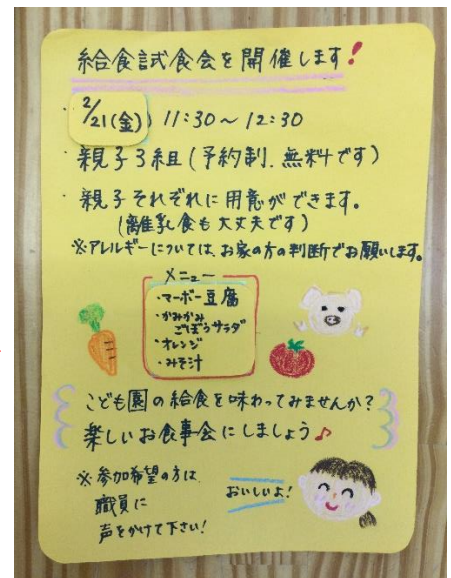 給食試食会を開催します!
・2/21(金) 11:30～12:30
・親子3組(予約制、無料です)
・親子それぞれに用意ができます。
(離乳食も大丈夫です)
※アレルギーについては、お家の方の判断でお願いします。
メニュー
・マーボー豆腐
・かみかみ
ごぼうサラダ
・オレンジ
・みそ汁
こども園の給食を味わってみませんか?
楽しいお食事会にしましょう♪
※参加希望の方は
職員に
声をかけて下さい!
おいしいよ!